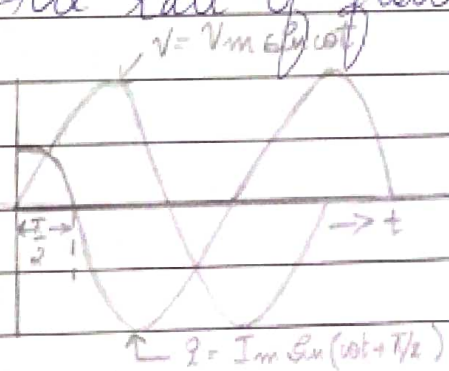 V = Vm sin ωt
π/2
→ t
i = Im sin (ωt + π/2)